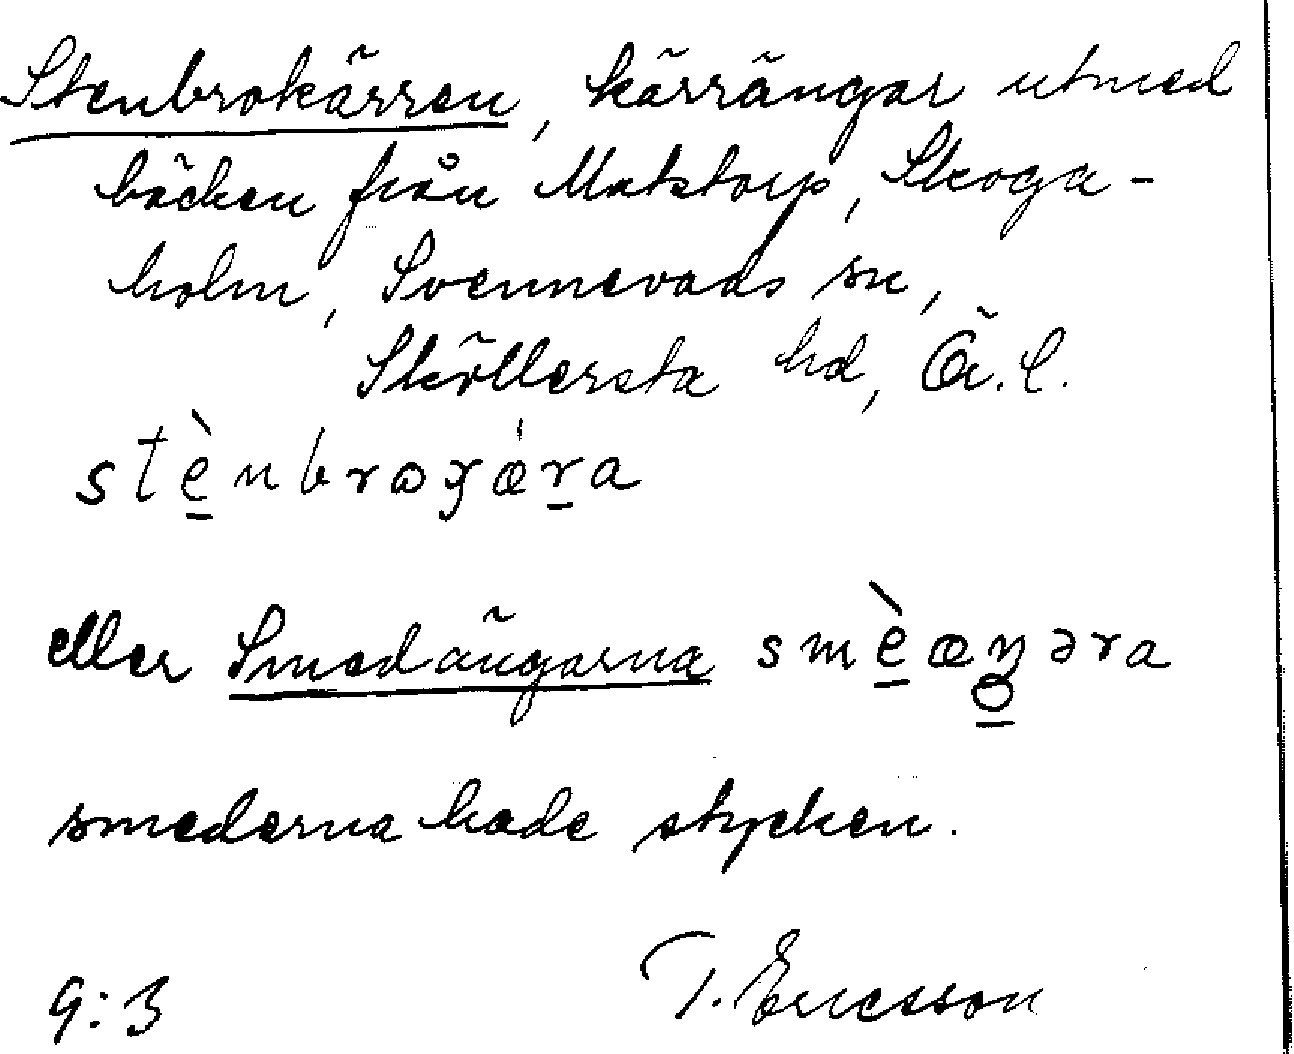 Stenbrokärren, kärrängar utmed
bäcken från Matstorp, Skoga-
holm, Svennevads sn,
Sköllersta hd, Ö.L.
stè̱nbroɣæ̀ṟa
eller Smedängarna smè̱æŋəra
smederna hade stycken.
9:3 T. Ericsson